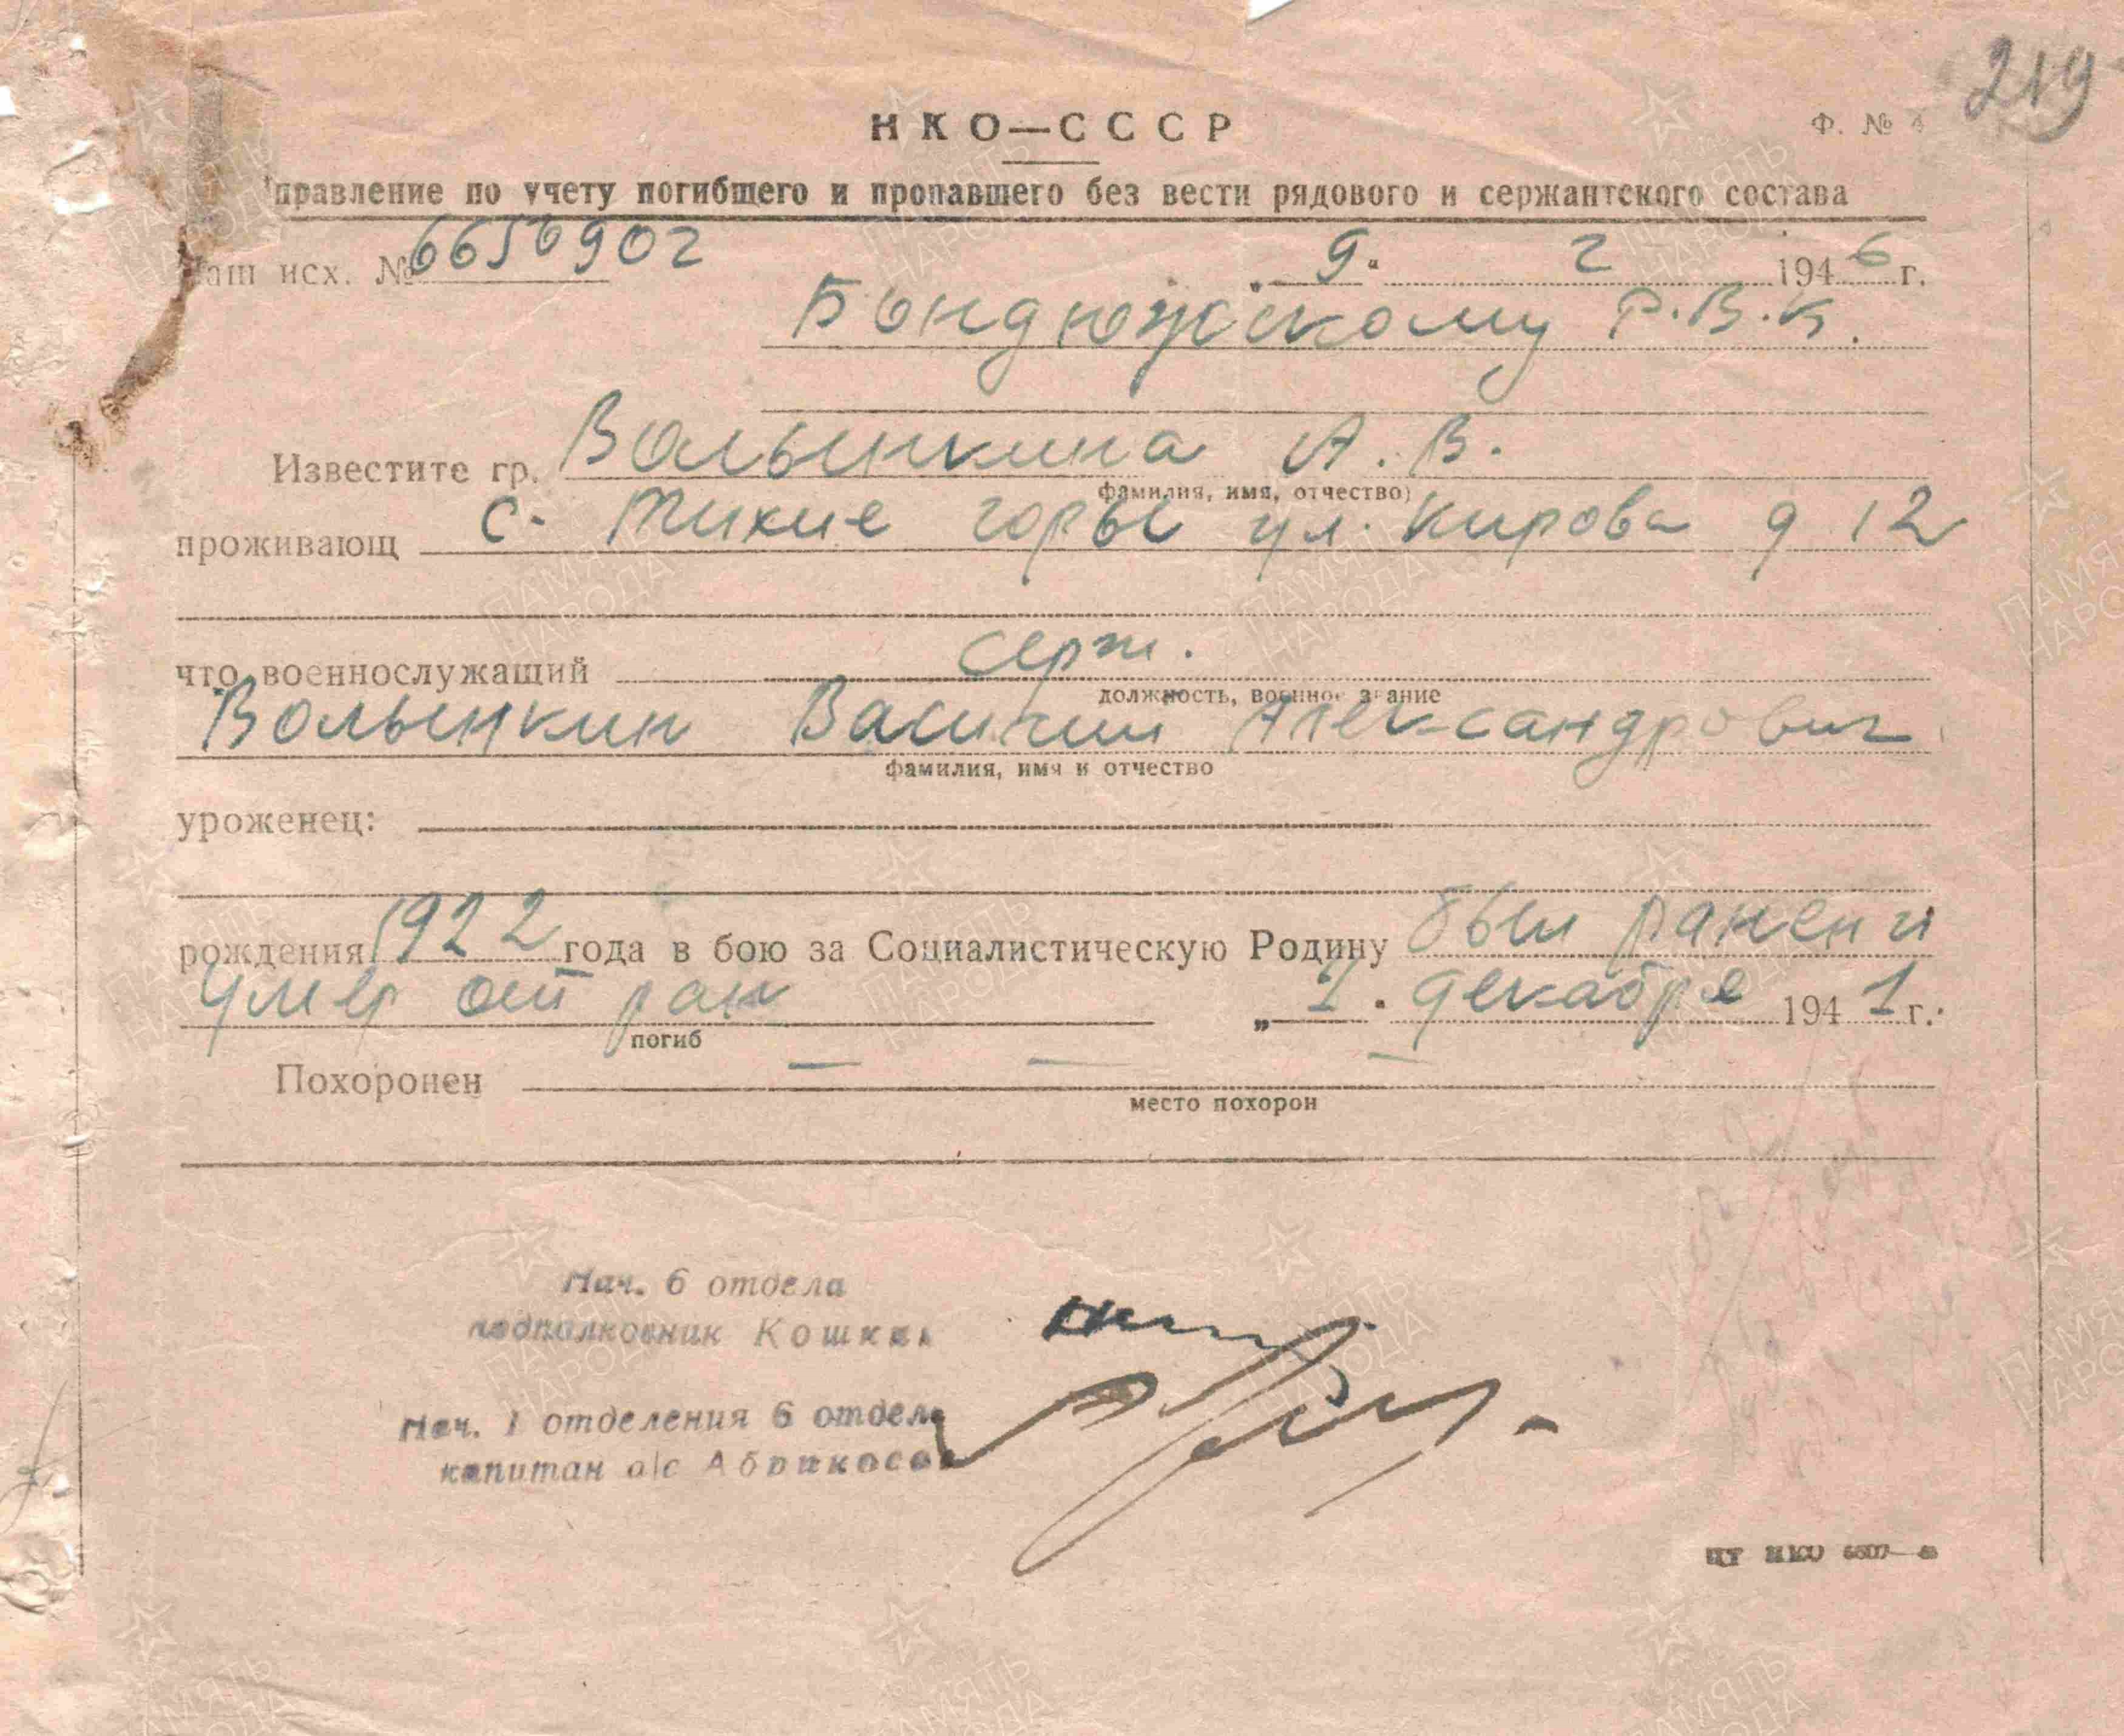 219
Ф. № 4
НКО—СССР
правление по учету погибшего и пропавшего без вести рядового и сержантского состава
аш исх. № 6656902 „ 9 “ 2 1946 г.
Бондюжскому Р.В.К.
Известите гр. Волынкина А. В.
фамилия, имя, отчество)
проживающ с. Тихие горы ул. Кирова д 12
что военнослужащий серж.
должность, военное звание
Волынкин Василий Александрович
фамилия, имя и отчество
уроженец:
рождения 1922 года в бою за Социалистическую Родину был ранен и
умер от ран „ 1 “ декабря 1941 г.
погиб
Похоронен — — —
место похорон
Нач. 6 отдела
подполковник Кошкин
Нач. 1 отделения 6 отдела
капитан а/с Абрикосов
ЦТ НКО
ПАМЯТЬ НАРОДА